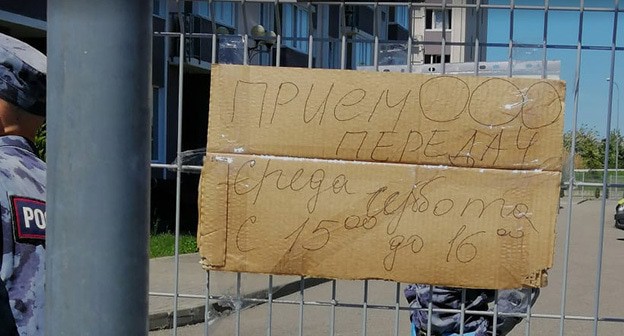 ПРИЕМ ООО
ПЕРЕДАЧ
Среда суббота
с 15 00 до 16 00
РО